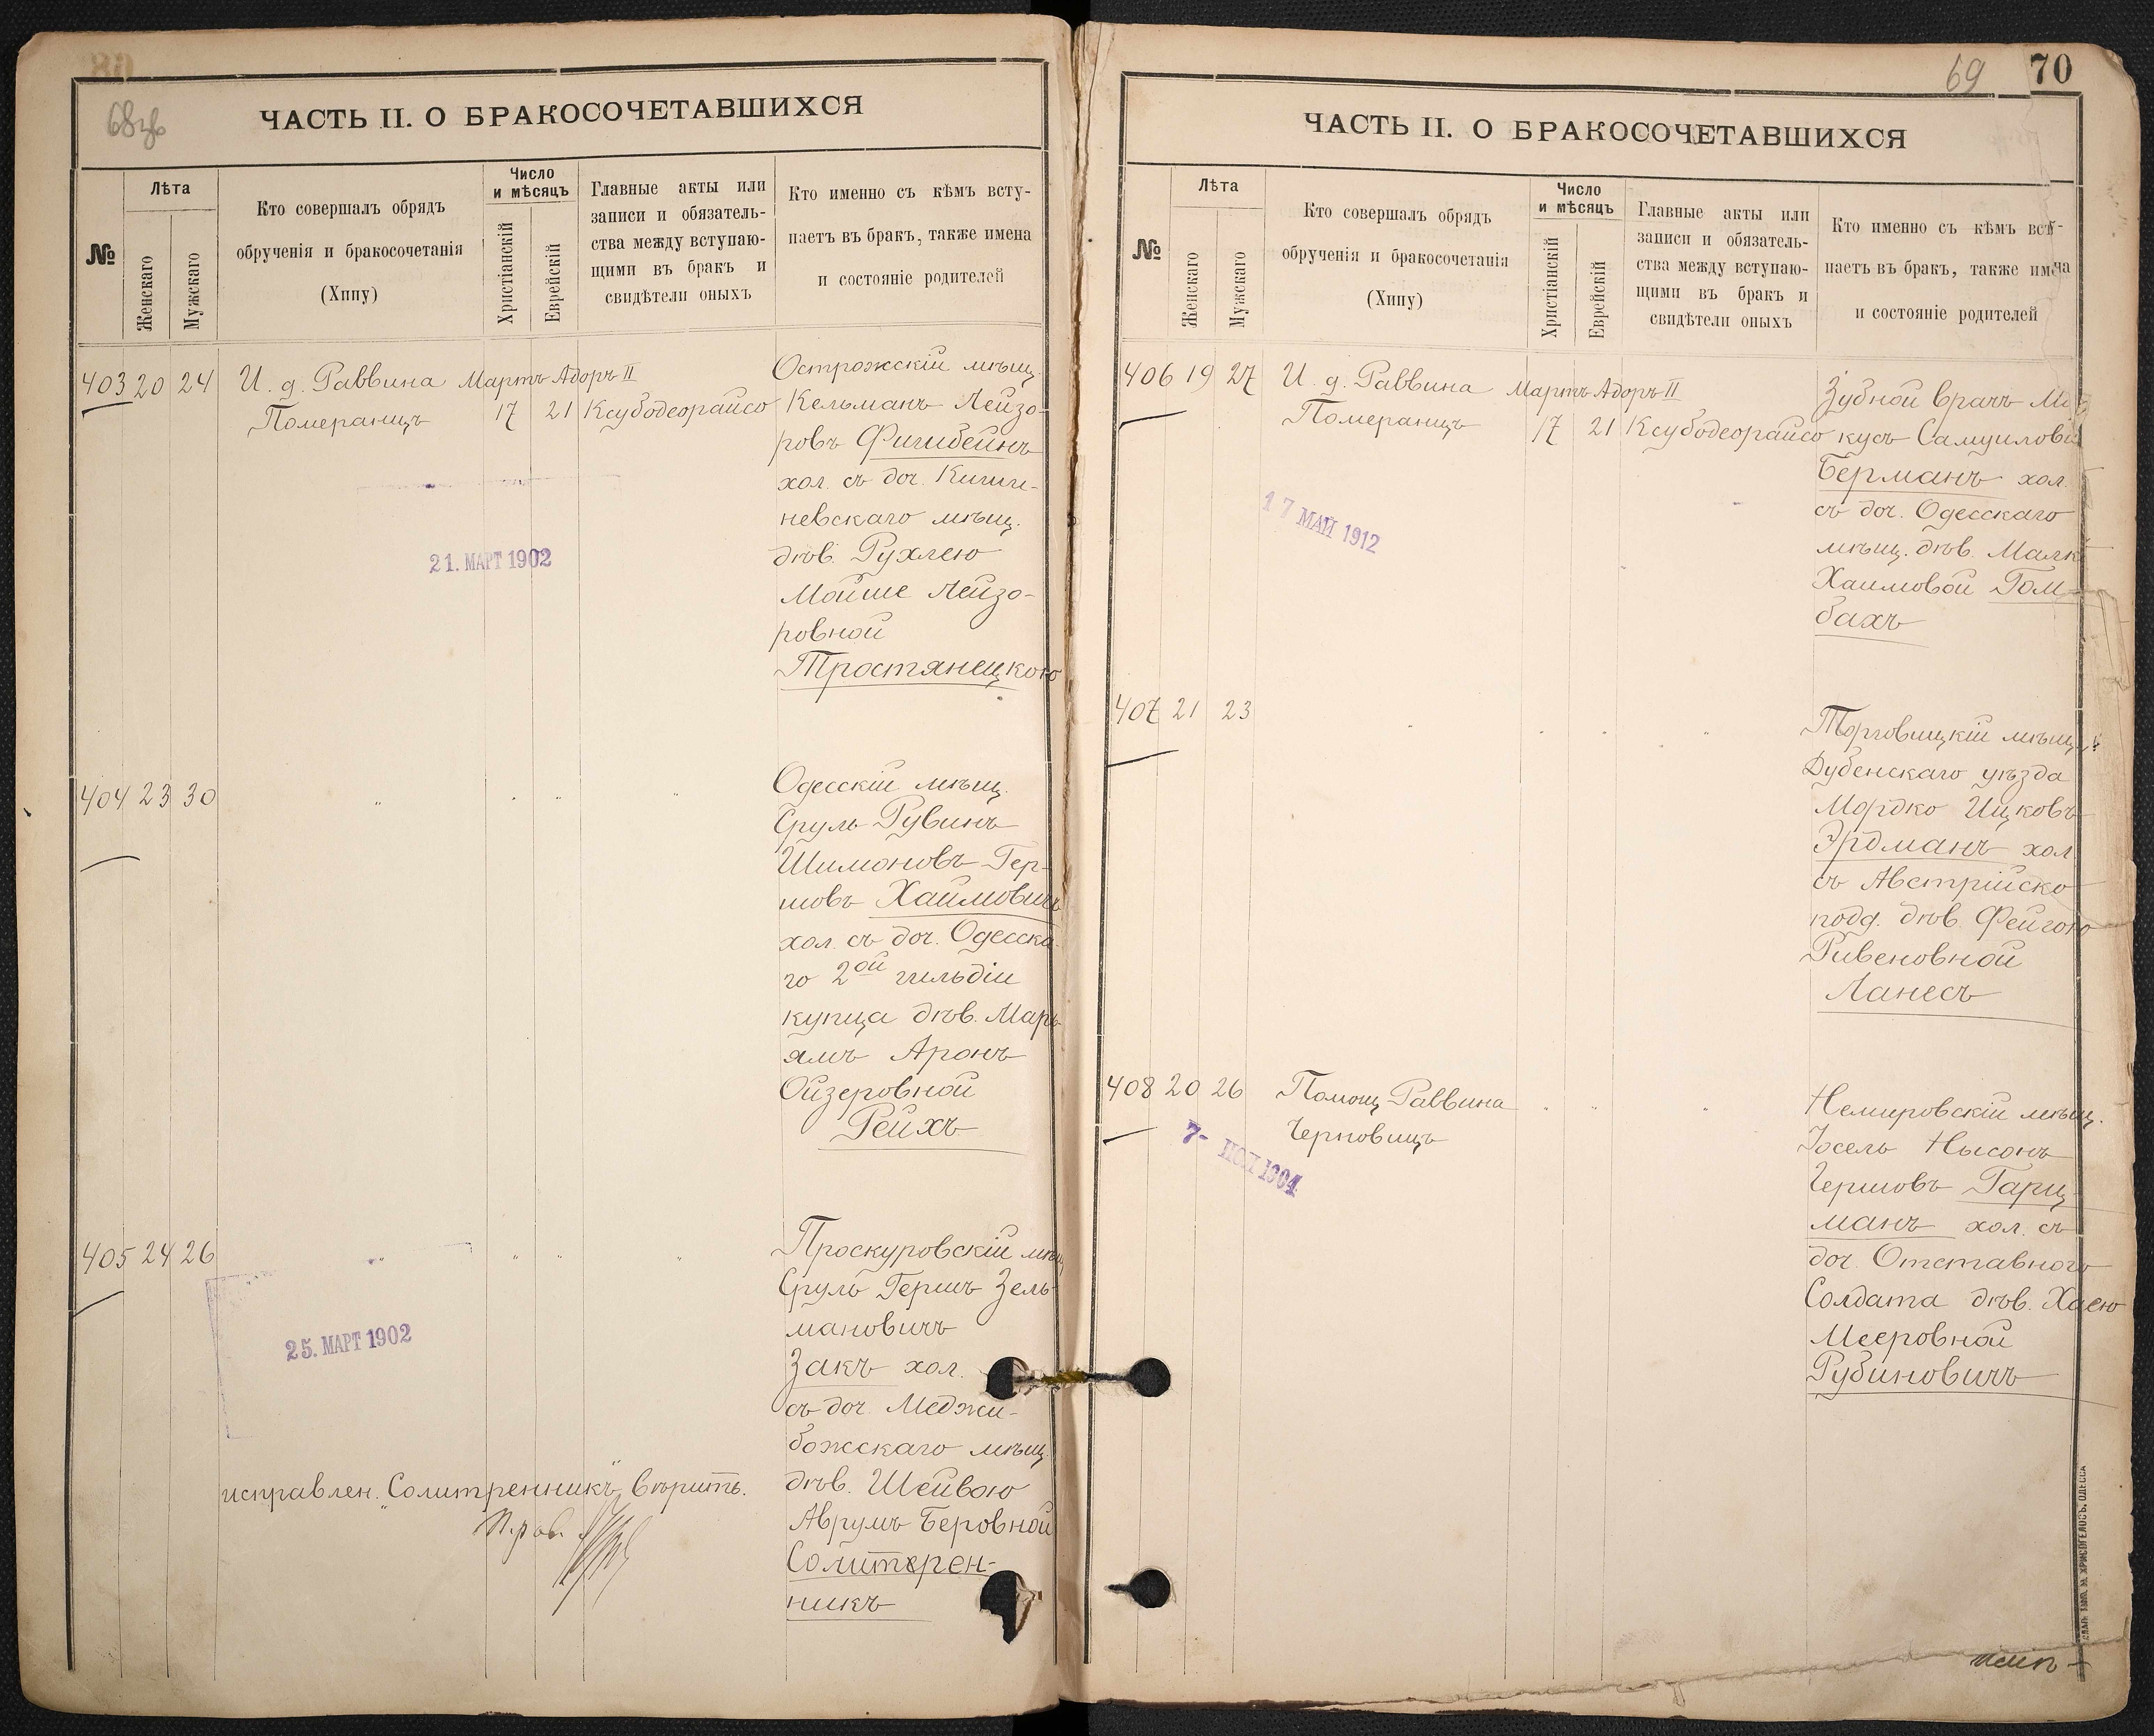 68об
ЧАСТЬ II. О БРАКОСОЧЕТАВШИХСЯ
№
Лѣта
Женскаго
Мужскаго
Кто совершалъ обрядъ
обрученія и бракосочетанія
(Хипу)
Число
и мѣсяцъ
Христіанскій
Еврейскій
Главные акты или
записи и обязатель-
ства между вступаю-
щими въ бракъ и
свидѣтели оныхъ
Кто именно съ кѣмъ всту-
паетъ въ бракъ, также имена
и состояніе родителей
403 20 24 И. д. Раввина Мартъ Адоръ II
Померанцъ 17 21 Ксубодеорайсо
Острожскій мѣщ.
Кельманъ Лейзо-
ровъ Фишбейнъ
хол. съ доч. Киши-
невскаго мѣщ.
дѣв. Рухлею
Мойше Лейзо-
ровной
Тростянецкою
21. МАРТ 1902
404 23 30 " " " "
Одесскій мѣщ.
Сруль Рувинъ
Шимоновъ Гер-
шовъ Хаимовичъ
хол. съ доч. Одесска-
го 2ой гильдіи
купца дѣв. Марь-
ямъ Аронъ
Ойзеровной
Рейхъ
405 24 26 " " " "
Проскуровскій мѣщ.
Сруль Гершъ Зель-
мановичъ
Закъ хол.
съ доч. Меджи-
божскаго мѣщ.
дѣв. Шейвою
Аврумъ Беровной
Солитерен-
никъ
25. МАРТ 1902
исправлен. "Солитренникъ" вѣрить.
П. рав.
69 70
ЧАСТЬ II. О БРАКОСОЧЕТАВШИХСЯ
№
Лѣта
Женскаго
Мужскаго
Кто совершалъ обрядъ
обрученія и бракосочетанія
(Хипу)
Число
и мѣсяцъ
Христіанскій
Еврейскій
Главные акты или
записи и обязатель-
ства между вступаю-
щими въ бракъ и
свидѣтели оныхъ
Кто именно съ кѣмъ всту-
паетъ въ бракъ, также имена
и состояніе родителей
406 19 27 И. д. Раввина Мартъ Адоръ II
Померанцъ 17 21 Ксубодеорайсо
Зубной врачъ Ма
кусъ Самуилови
Берманъ хол.
съ доч. Одесскаго
мѣщ. дѣв. Малк
Хаимовой Гом-
бахъ
17 МАЙ 1912
407 21 23 " " " "
Торговицкій мѣщ.
Дубенскаго уѣзда
Мордко Ицковъ
Эрдманъ хол.
съ Австрійско
подд. дѣв. Фейгою
Ривеновной
Ланесъ
408 20 26 Помощ. Раввина " " "
Черновицъ
Немировскій мѣщ.
Іосель Нысонъ
Гершовъ Гарц-
манъ хол. съ
доч. Отставного
Солдата дѣв. Хаею
Мееровной
Рубиновичъ
7- ІЮЛ 1904
М. ХРИСОГЕЛОСЪ, ОДЕССА